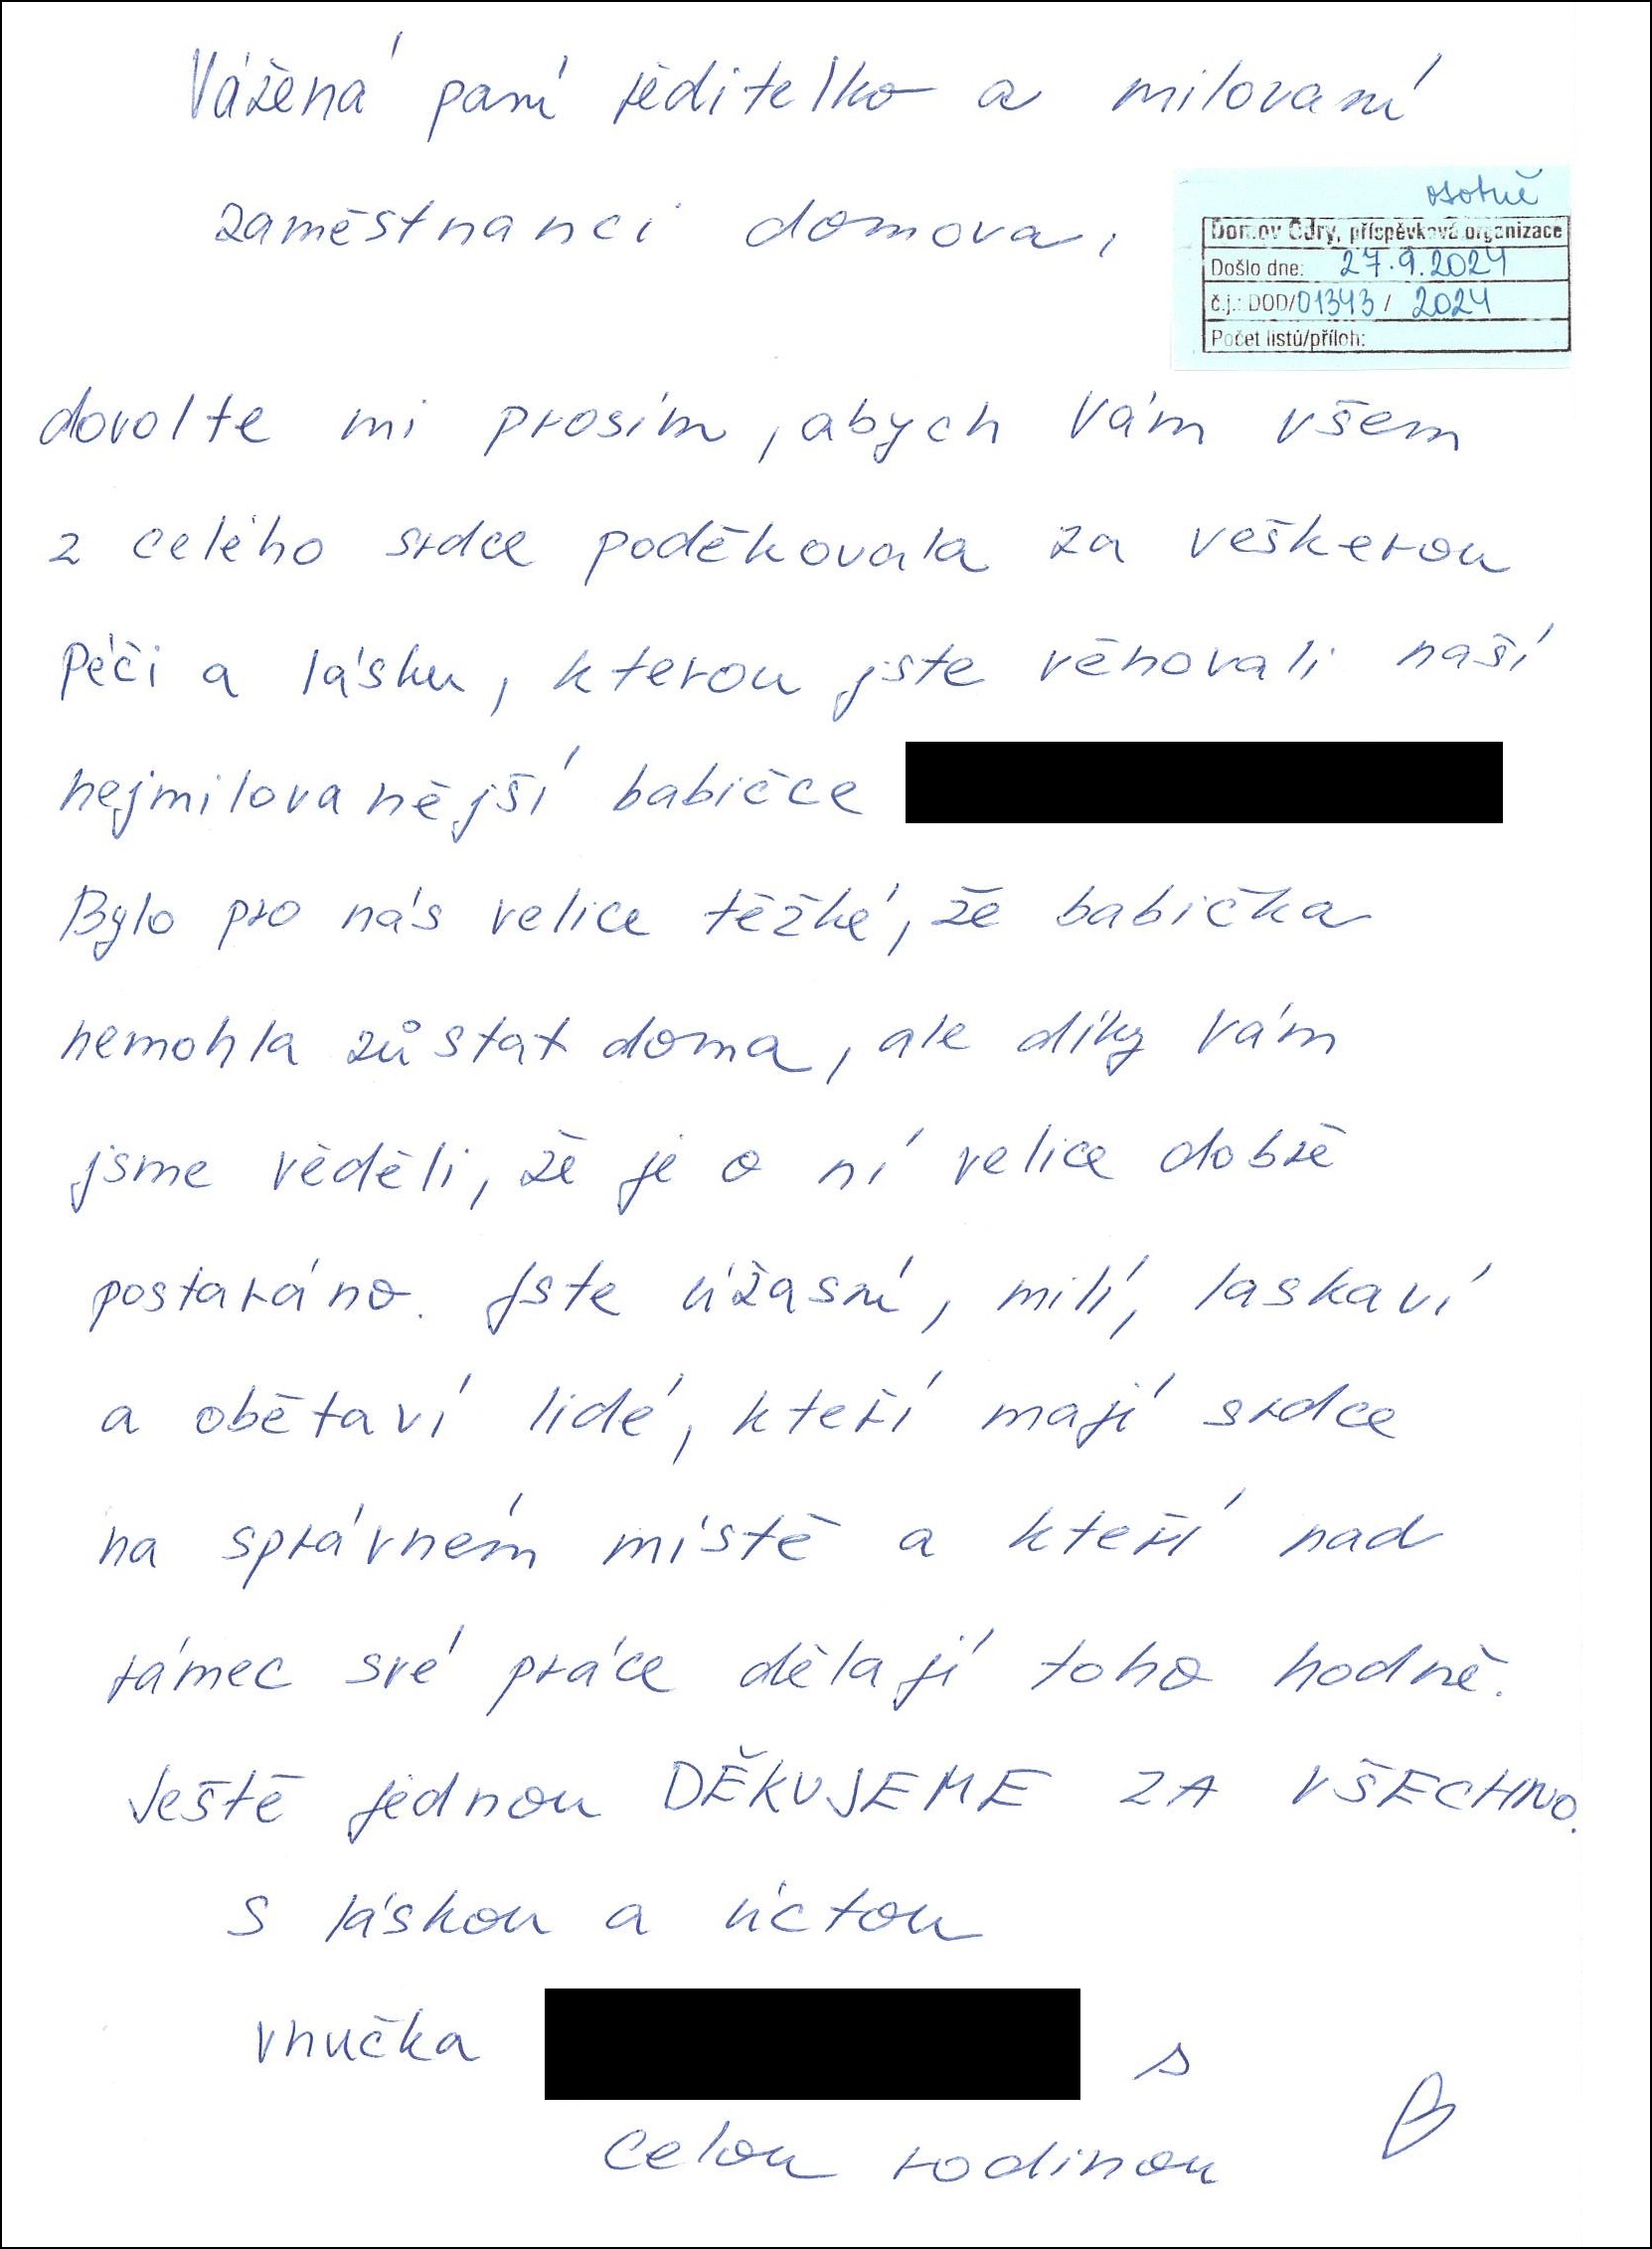 Vážená paní ředitelko a milovaní
zaměstnanci domova,
osobně
Domov Odry, příspěvková organizace
Došlo dne: 27.9.2024
č.j.: DOD/01343/ 2024
Počet listů/příloh:
dovolte mi prosím, abych Vám všem
z celého srdce poděkovala za veškerou
péči a lásku, kterou jste věnovali naší
nejmilovanější babičce
Bylo pro nás velice těžké, že babička
nemohla zůstat doma, ale díky Vám
jsme věděli, že je o ní velice dobře
postaráno. Jste úžasní, milí, laskaví
a obětaví lidé, kteří mají srdce
na správném místě a kteří nad
rámec své práce dělají toho hodně.
Ještě jednou DĚKUJEME ZA VŠECHNO.
S láskou a úctou
vnučka s
celou rodinou